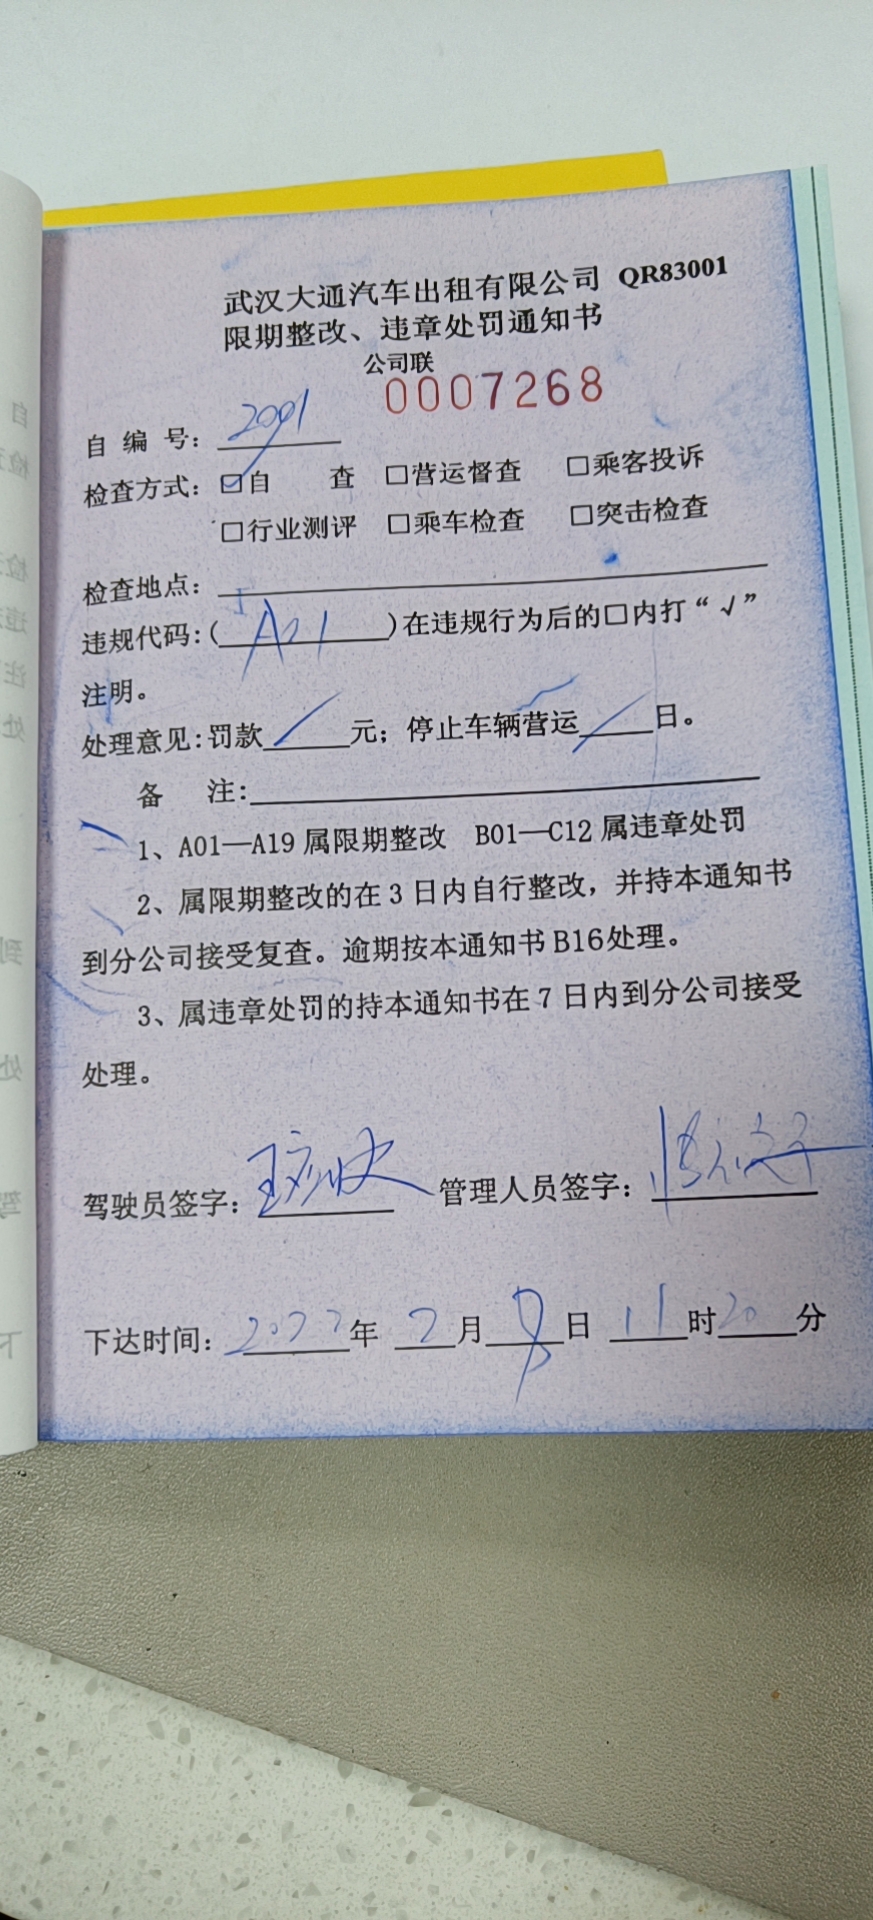 武汉大通汽车出租有限公司 QR83001
限期整改、违章处罚通知书
公司联
0007268
自编号：2091
检查方式：☑自 查 □营运督查 □乘客投诉
□行业测评 □乘车检查 □突击检查
检查地点：
违规代码：(A01)在违规行为后的□内打“√”
注明。
处理意见：罚款/元；停止车辆营运/日。
备 注：
1、A01—A19属限期整改 B01—C12属违章处罚
2、属限期整改的在3日内自行整改，并持本通知书
到分公司接受复查。逾期按本通知书B16处理。
3、属违章处罚的持本通知书在7日内到分公司接受
处理。
驾驶员签字： 管理人员签字：
下达时间：2022年2月8日11时20分